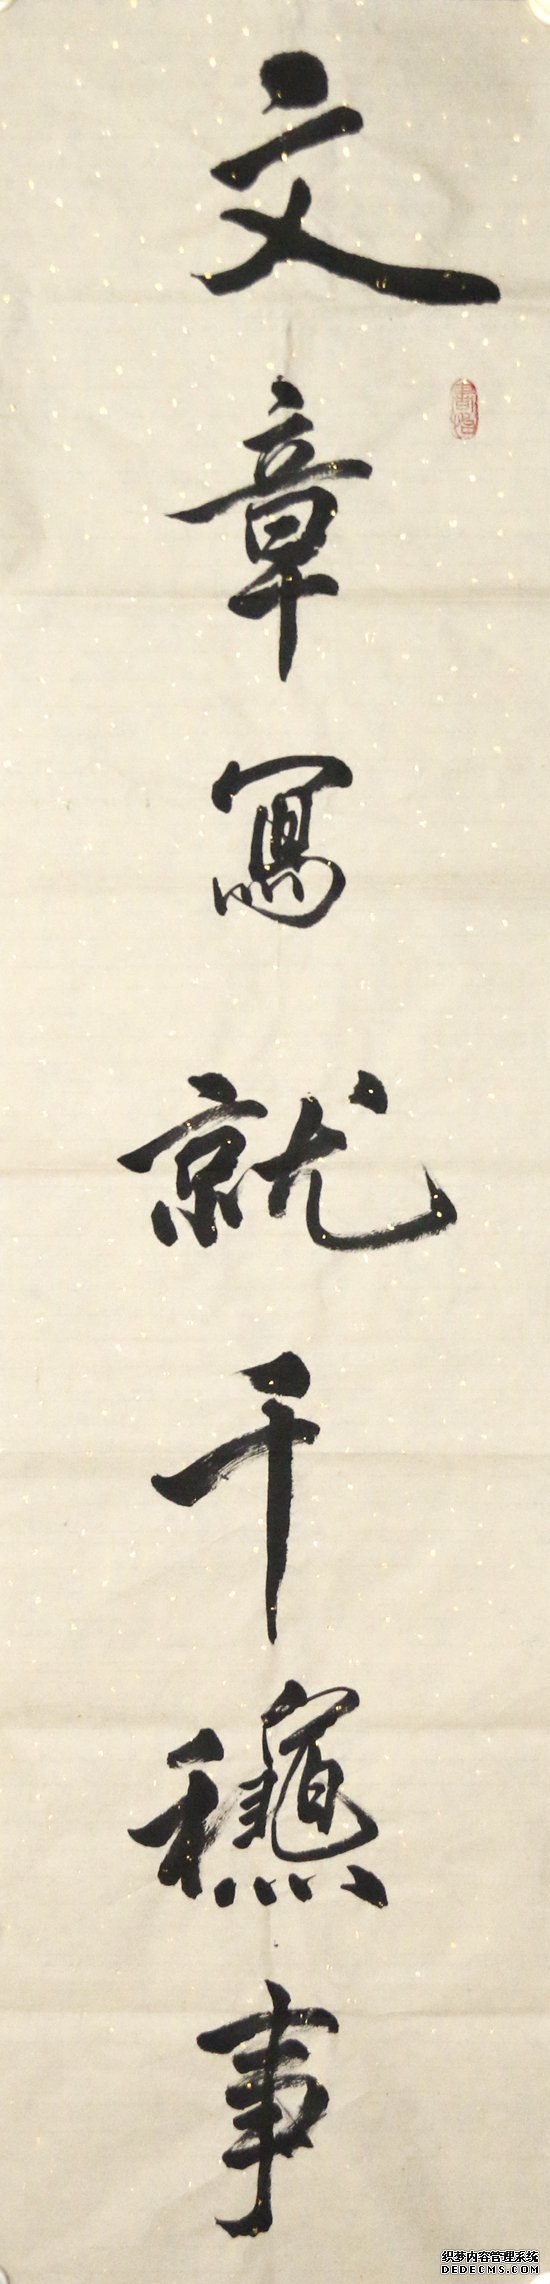 文章寫就千龝事
织梦内容管理系统
DEDECMS.COM